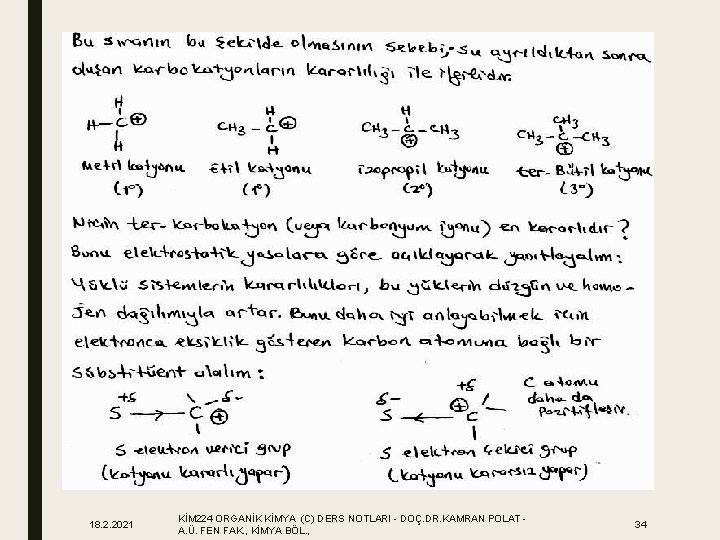 Bu sıranın bu şekilde olmasının sebebi, su ayrıldıktan sonra
oluşan karbokatyonların kararlılığı ile ilgilidir.
H H H CH3
H–C⊕ CH3–C⊕ CH3–C–CH3 CH3–C–CH3
H H ⊕ ⊕
Metil katyonu Etil katyonu izopropil katyonu ter-Bütil katyonu
(1º) (1º) (2º) (3º)
Niçin ter-karbokatyon (veya karbonyum iyonu) en kararlıdır?
Bunu elektrostatik yasalara göre açıklayarak yanıtlayalım:
Yüklü sistemlerin kararlılıkları, bu yüklerin düzgün ve homo-
jen dağılımıyla artar. Bunu daha iyi anlayabilmek için
elektronca eksiklik gösteren karbon atomuna bağlı bir
Sübstitüent alalım:
+δ δ- δ- +δ C atomu
S → C ⊕ S ← ⊕ C daha da
pozitifleşir.
S elektron verici grup S elektron çekici grup
(katyonu kararlı yapar) (katyonu kararsız yapar)
18.2.2021
KİM 224 ORGANİK KİMYA (C) DERS NOTLARI - DOÇ.DR.KAMRAN POLAT -
A.Ü. FEN FAK., KİMYA BÖL.,
34